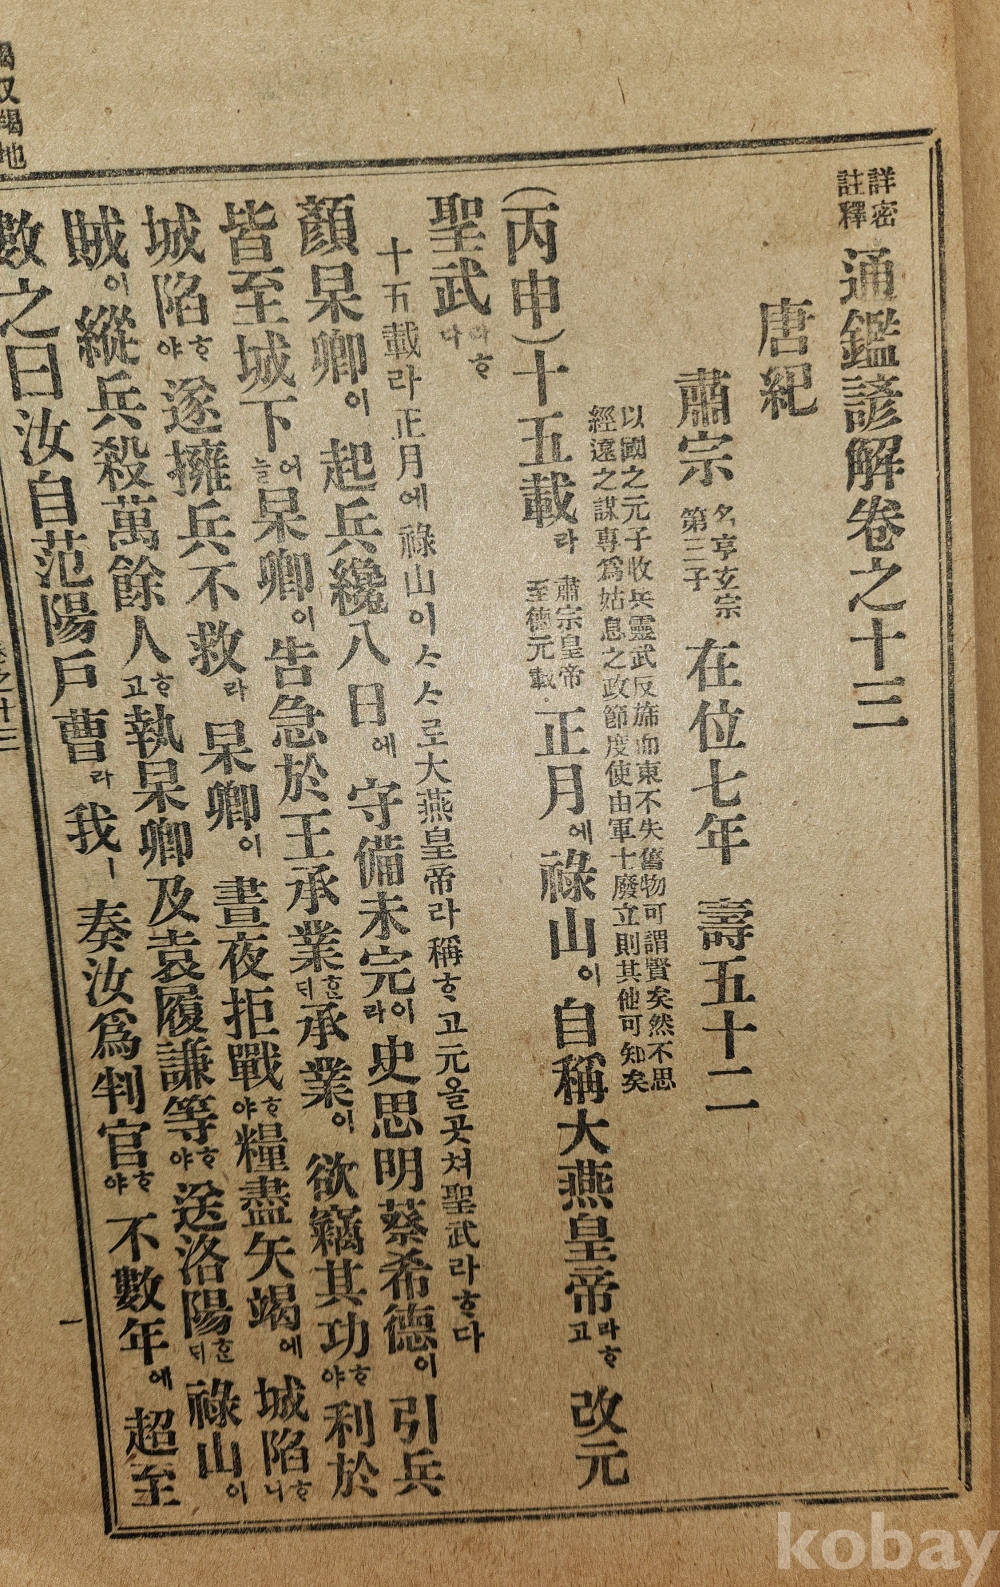 詳密
註釋
通鑑諺解卷之十三
唐紀
肅宗 名亨玄宗
第三子 在位七年 壽五十二
以國之元子收兵靈武反旆而東不失舊物可謂賢矣然不思
經遠之謀專爲姑息之政節度使由軍士廢立則其他可知矣
(丙申)十五載라 肅宗皇帝
至德元載 正月에祿山이 自稱大燕皇帝라ᄒᆞ고 改元
聖武라ᄒᆞ다
十五載라正月에祿山이스스로大燕皇帝라稱ᄒᆞ고元올곳쳐聖武라ᄒᆞ다
顏杲卿이 起兵纔八日에 守備未完이라史思明蔡希德이 引兵
皆至城下어늘杲卿이 告急於王承業ᄒᆞᆫᄃᆡ承業이 欲竊其功ᄒᆞ야 利於
城陷ᄒᆞ야 遂擁兵不救라 杲卿이 晝夜拒戰ᄒᆞ야糧盡矢竭에 城陷ᄒᆞ니
賊이 縱兵殺萬餘人ᄒᆞ고執杲卿及袁履謙等ᄒᆞ야送洛陽ᄒᆞᆫᄃᆡ 祿山이
數之曰汝自范陽戶曹라 我ㅣ 奏汝爲判官ᄒᆞ야 不數年에 超至
一